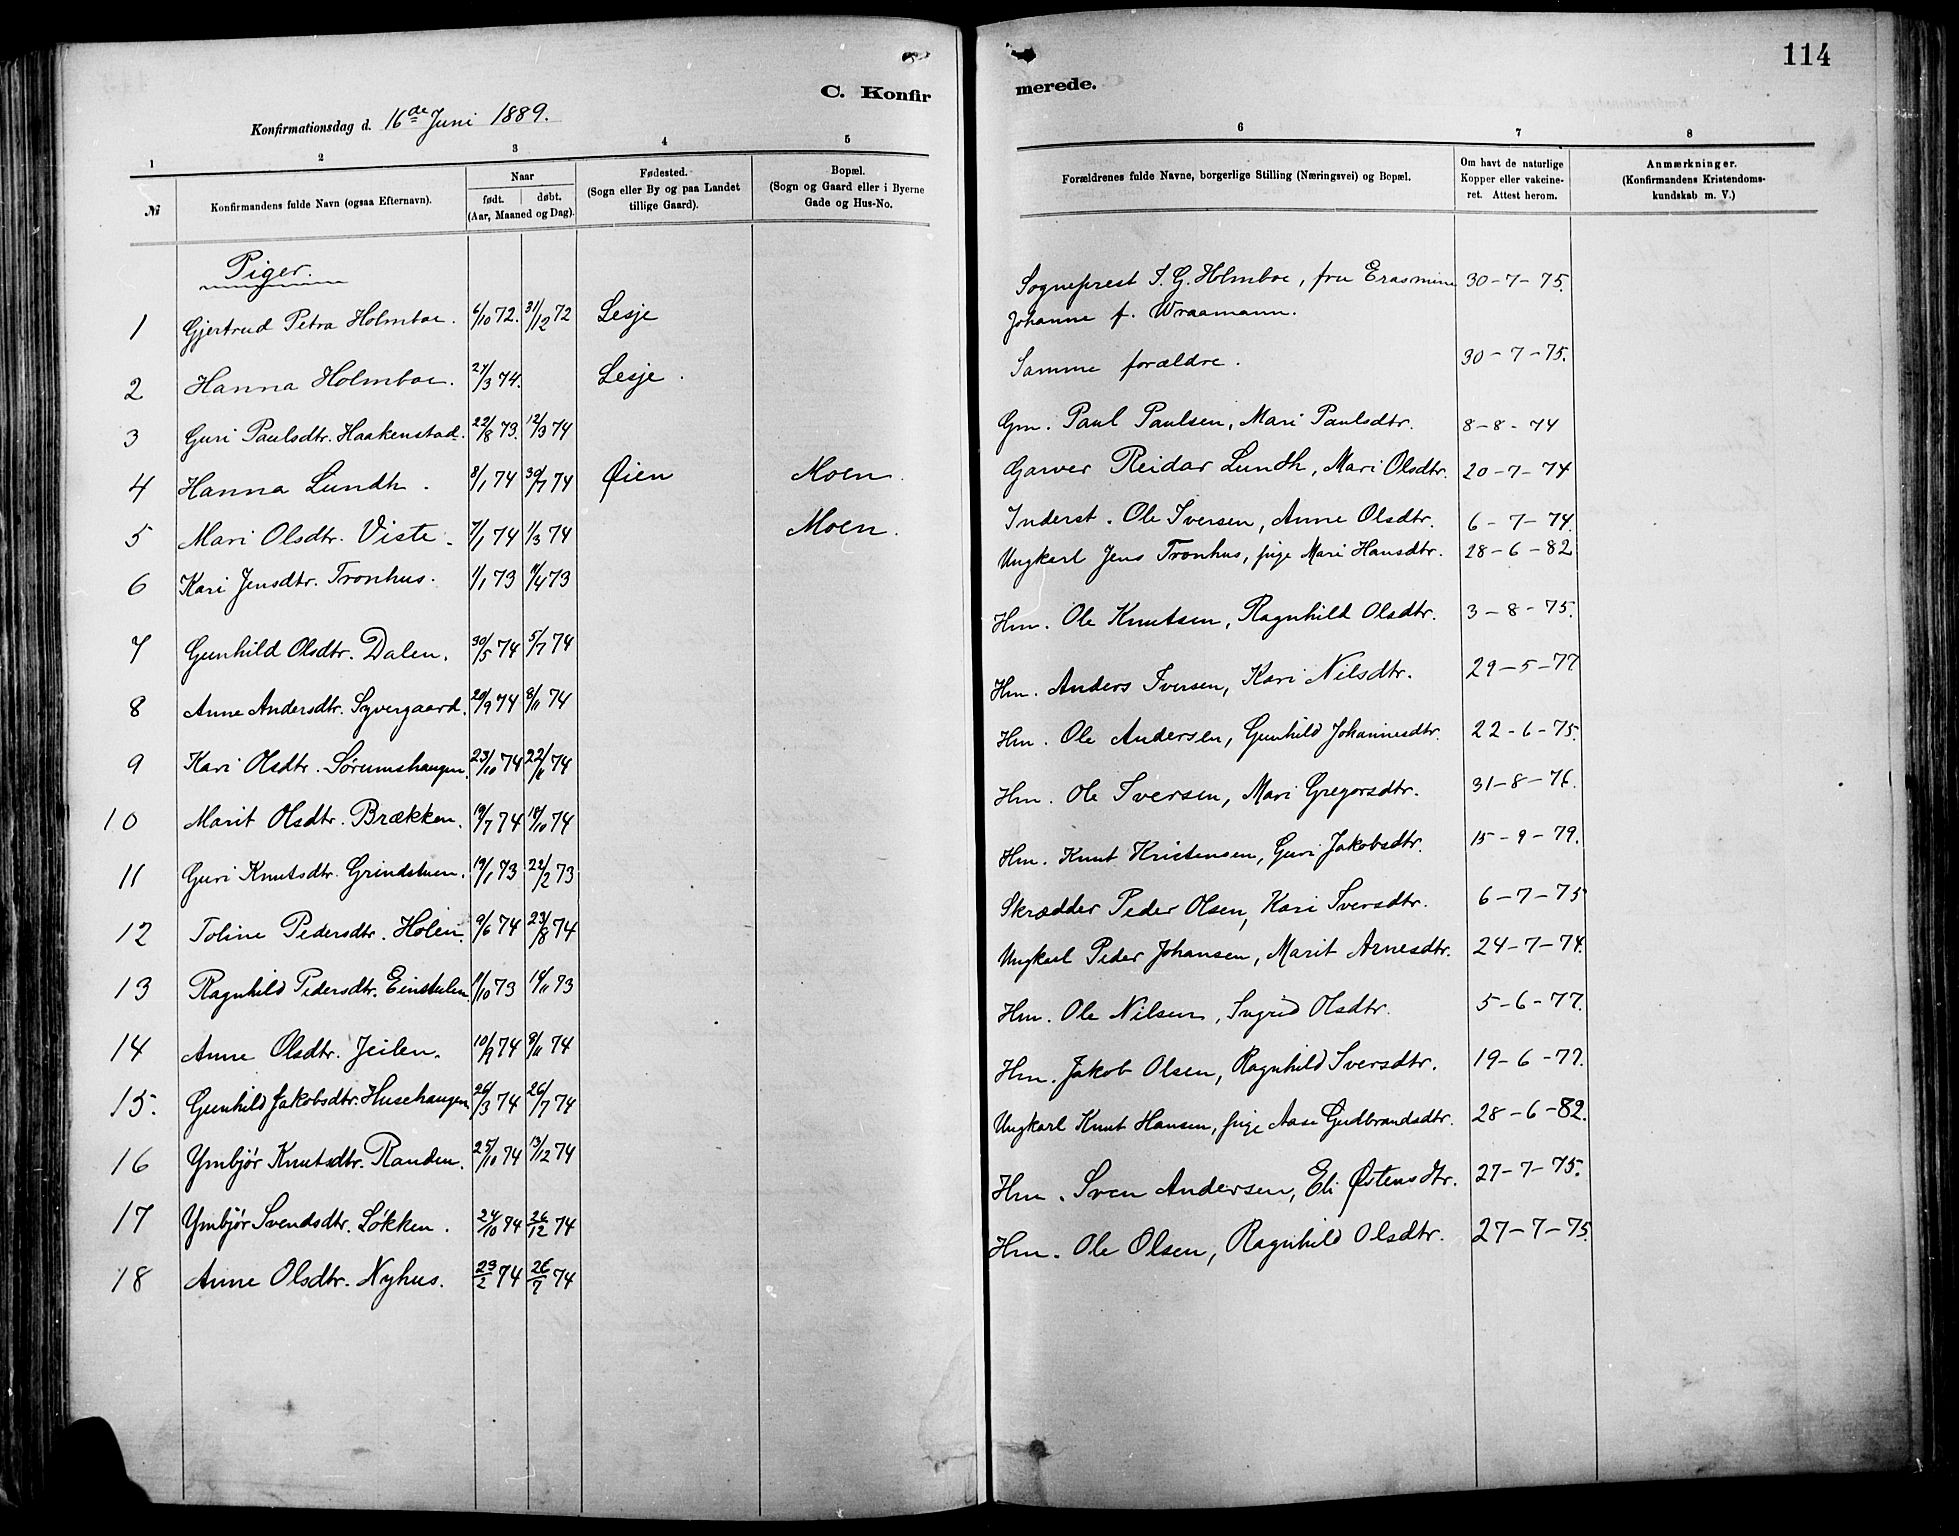 114
C. Konfir
merede.
Konfirmationsdag d. 16de Juni 1889.
1 2 3 4 5 6 7 8
№
Konfirmandens fulde Navn (ogsaa Efternavn).
Naar
født. døbt.
(Aar, Maaned og Dag).
Fødested.
(Sogn eller By og paa Landet
tillige Gaard).
Bopæl.
(Sogn og Gaard eller i Byerne
Gade og Hus-No.
Forældrenes fulde Navne, borgerlige Stilling (Næringsvei) og Bopæl.
Om havt de naturlige
Kopper eller vakcine-
ret. Attest herom.
Anmærkninger.
(Konfirmandens Kristendoms-
kundskab m. V.)
Piger.
1 Gjertrud Petra Holmboe. 6/10 72. 31/12 72 Lesje Sogneprest I. G. Holmboe, fru Erasmine 30-7-75.
Johanne f. Wraamann.
2 Hanna Holmboe. 27/3 74. Lesje. Samme forældre. 30-7-75.
3 Guri Paulsdtr. Haakenstad. 22/8 73. 12/3 74 Gm. Paul Paulsen, Mari Paulsdtr. 8-8-74
4 Hanna Lundh. 8/1 74 30/7 74 Øien Moen. Garver Reidar Lundh, Mari Olsdtr. 20-7-74
5 Mari Olsdtr. Viste. 7/1 74 1/3 74 Moen. Inderst. Ole Iversen, Anne Olsdtr. 6-7-74.
6 Kari Jensdtr. Tronhus. 1/1 73 /4 73 Ungkarl Jens Tronhus, pige Mari Hansdtr. 28-6-82
7 Gunhild Olsdtr. Dalen. 30/5 74 5/7 74 Hm. Ole Knutsen, Ragnhild Olsdtr. 3-8-75.
8 Anne Andersdtr. Syvergaard. 20/9 74 8/11 74 Hm. Anders Iversen, Kari Nilsdtr. 29-5-77
9 Kari Olsdtr. Sørumshaugen. 23/10 74 22/11 74 Hm. Ole Andersen, Gunhild Johannesdtr. 22-6-75.
10 Marit Olsdtr. Brækken. 19/7 74 18/10 74 Hm. Ole Iversen, Mari Gregorsdtr. 31-8-76.
11 Guri Knutsdtr. Grindstuen. 19/1 73 22/2 73 Hm. Knut Kristensen, Guri Jakobsdtr. 15-9-79.
12 Toline Pedersdtr. Holen. 9/6 74 23/8 74 Skrædder Peder Olsen, Kari Iversdtr. 6-7-75
13 Ragnhild Pedersdtr. Einstulen. /10 73 /11 73 Ungkarl Peder Johansen, Marit Arnesdtr. 24-7-74.
14 Anne Olsdtr. Jeilen. 10/9 74 8/11 74 Hm. Ole Nilsen, Ingrid Olsdtr. 5-6-77.
15. Gunhild Jakobsdtr. Husehaugen 26/3 74 26/7 74 Hm. Jakob Olsen, Ragnhild Iversdtr. 19-6-77.
16 Ymbjør Knutsdtr. Randen. 25/10 74 13/12 74 Ungkarl Knut Hansen, pige Aase Gudbrandsdtr. 28-6-82.
17 Ymbjør Svendsdtr. Løkken. 24/10 74 26/12 74 Hm. Sven Andersen, Eli Østensdtr. 27-7-75.
18 Anne Olsdtr. Nyhus. 23/2 74 26/7 74 Hm. Ole Olsen, Ragnhild Olsdtr. 27-7-75.